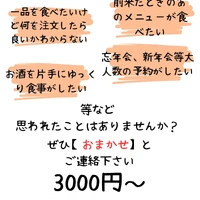 一品を食べたいけ
ど何を注文したら
良いかわからない
前来たときのあ
のメニューが食
べたい
お酒を片手にゆっく
り食事がしたい
忘年会、新年会等大
人数の予約がしたい
等など
思われたことはありませんか？
ぜひ【 おまかせ 】と
ご連絡下さい
3000円～